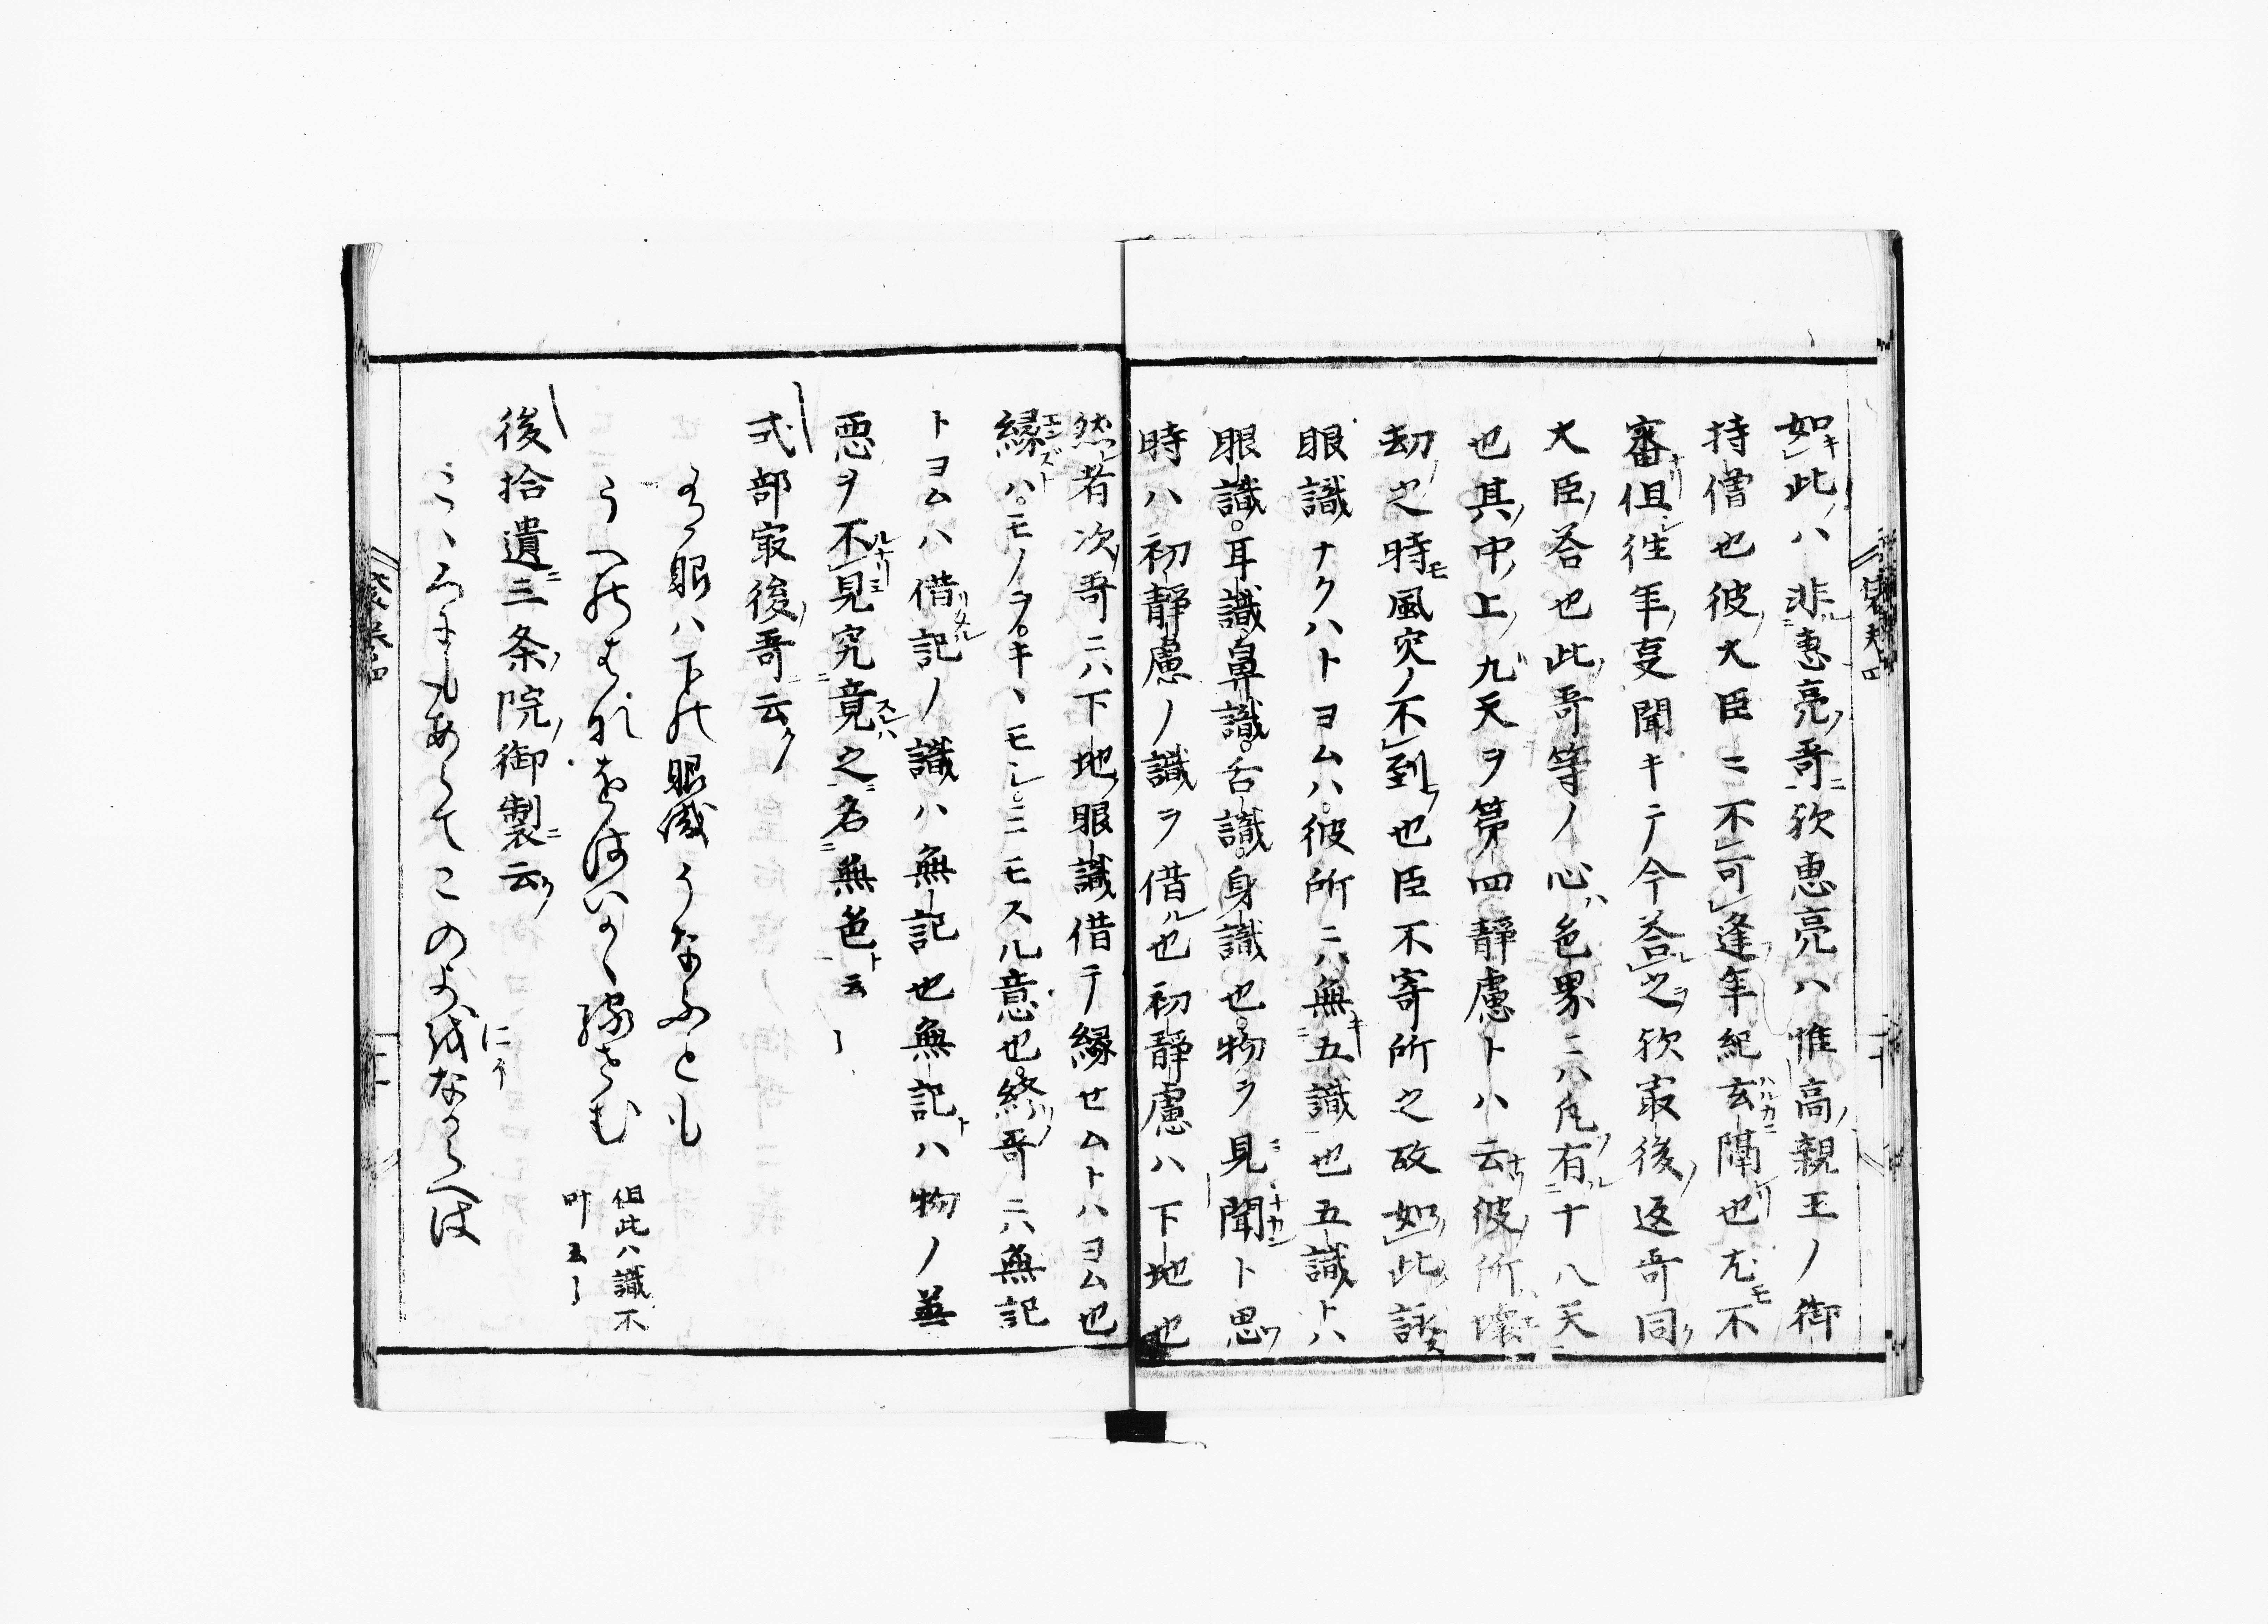 如此ハ非恵亮哥歟恵亮ハ惟高親王ノ御
持僧也彼大臣ニ不可逢年紀玄隔也尤不
審但徃年変聞キテ今荅之歟㝡後返哥同
大臣荅也此哥等ノ心色界ニハ凡有十八天
也其中上九天ヲ第四靜慮トハ云彼所壊
劫之時風灾ノ不到也臣不寄所之故如此詠
眼識ナクハトヨムハ彼所ニハ無五識也五識トハ
眼識耳識鼻識舌識身識也物ヲ見聞ト思
時ハ初靜慮ノ識ヲ借也初靜慮ハ下地也
然者次哥ニハ下地眼識借テ縁セムトハヨム也
縁ハモノヲヲキヽモシニモスル意也終哥ニハ無記
トヨムハ借記ノ識ハ無記也無記ハ物ノ善
悪ヲ不見究竟之名無色ト云
弐部㝡後哥云ク
眼ハ下の眼識うなふとも
うへの
縁せむ
但此ハ識不
叶云
後拾遺三条院御製云
こゝろにもあらてこのよになからへは